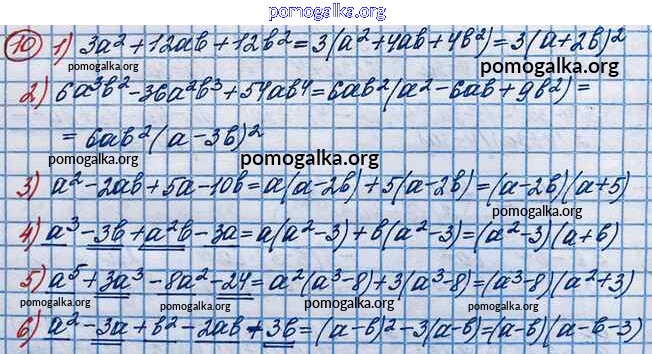 pomogalka.org
10 1) 3a² + 12ab + 12b² = 3(a² + 4ab + 4b²) = 3(a + 2b)²
pomogalka.org pomogalka.org
2) 6a³b² - 36a²b³ + 54ab⁴ = 6ab²(a² - 6ab + 9b²) =
= 6ab²(a - 3b)²
pomogalka.org pomogalka.org
3) a² - 2ab + 5a - 10b = a(a - 2b) + 5(a - 2b) = (a - 2b)(a + 5)
pomogalka.org pomogalka.org pomogalka.org
4) a³ - 3b + a²b - 3a = a(a² - 3) + b(a² - 3) = (a² - 3)(a + b)
pomogalka.org
5) a⁵ + 3a³ - 8a² - 24 = a²(a³ - 8) + 3(a³ - 8) = (a³ - 8)(a² + 3)
pomogalka.org pomogalka.org pomogalka.org pomogalka.org
6) a² - 3a + b² - 2ab + 3b = (a - b)² - 3(a - b) = (a - b)(a - b - 3)
pomogalka.org